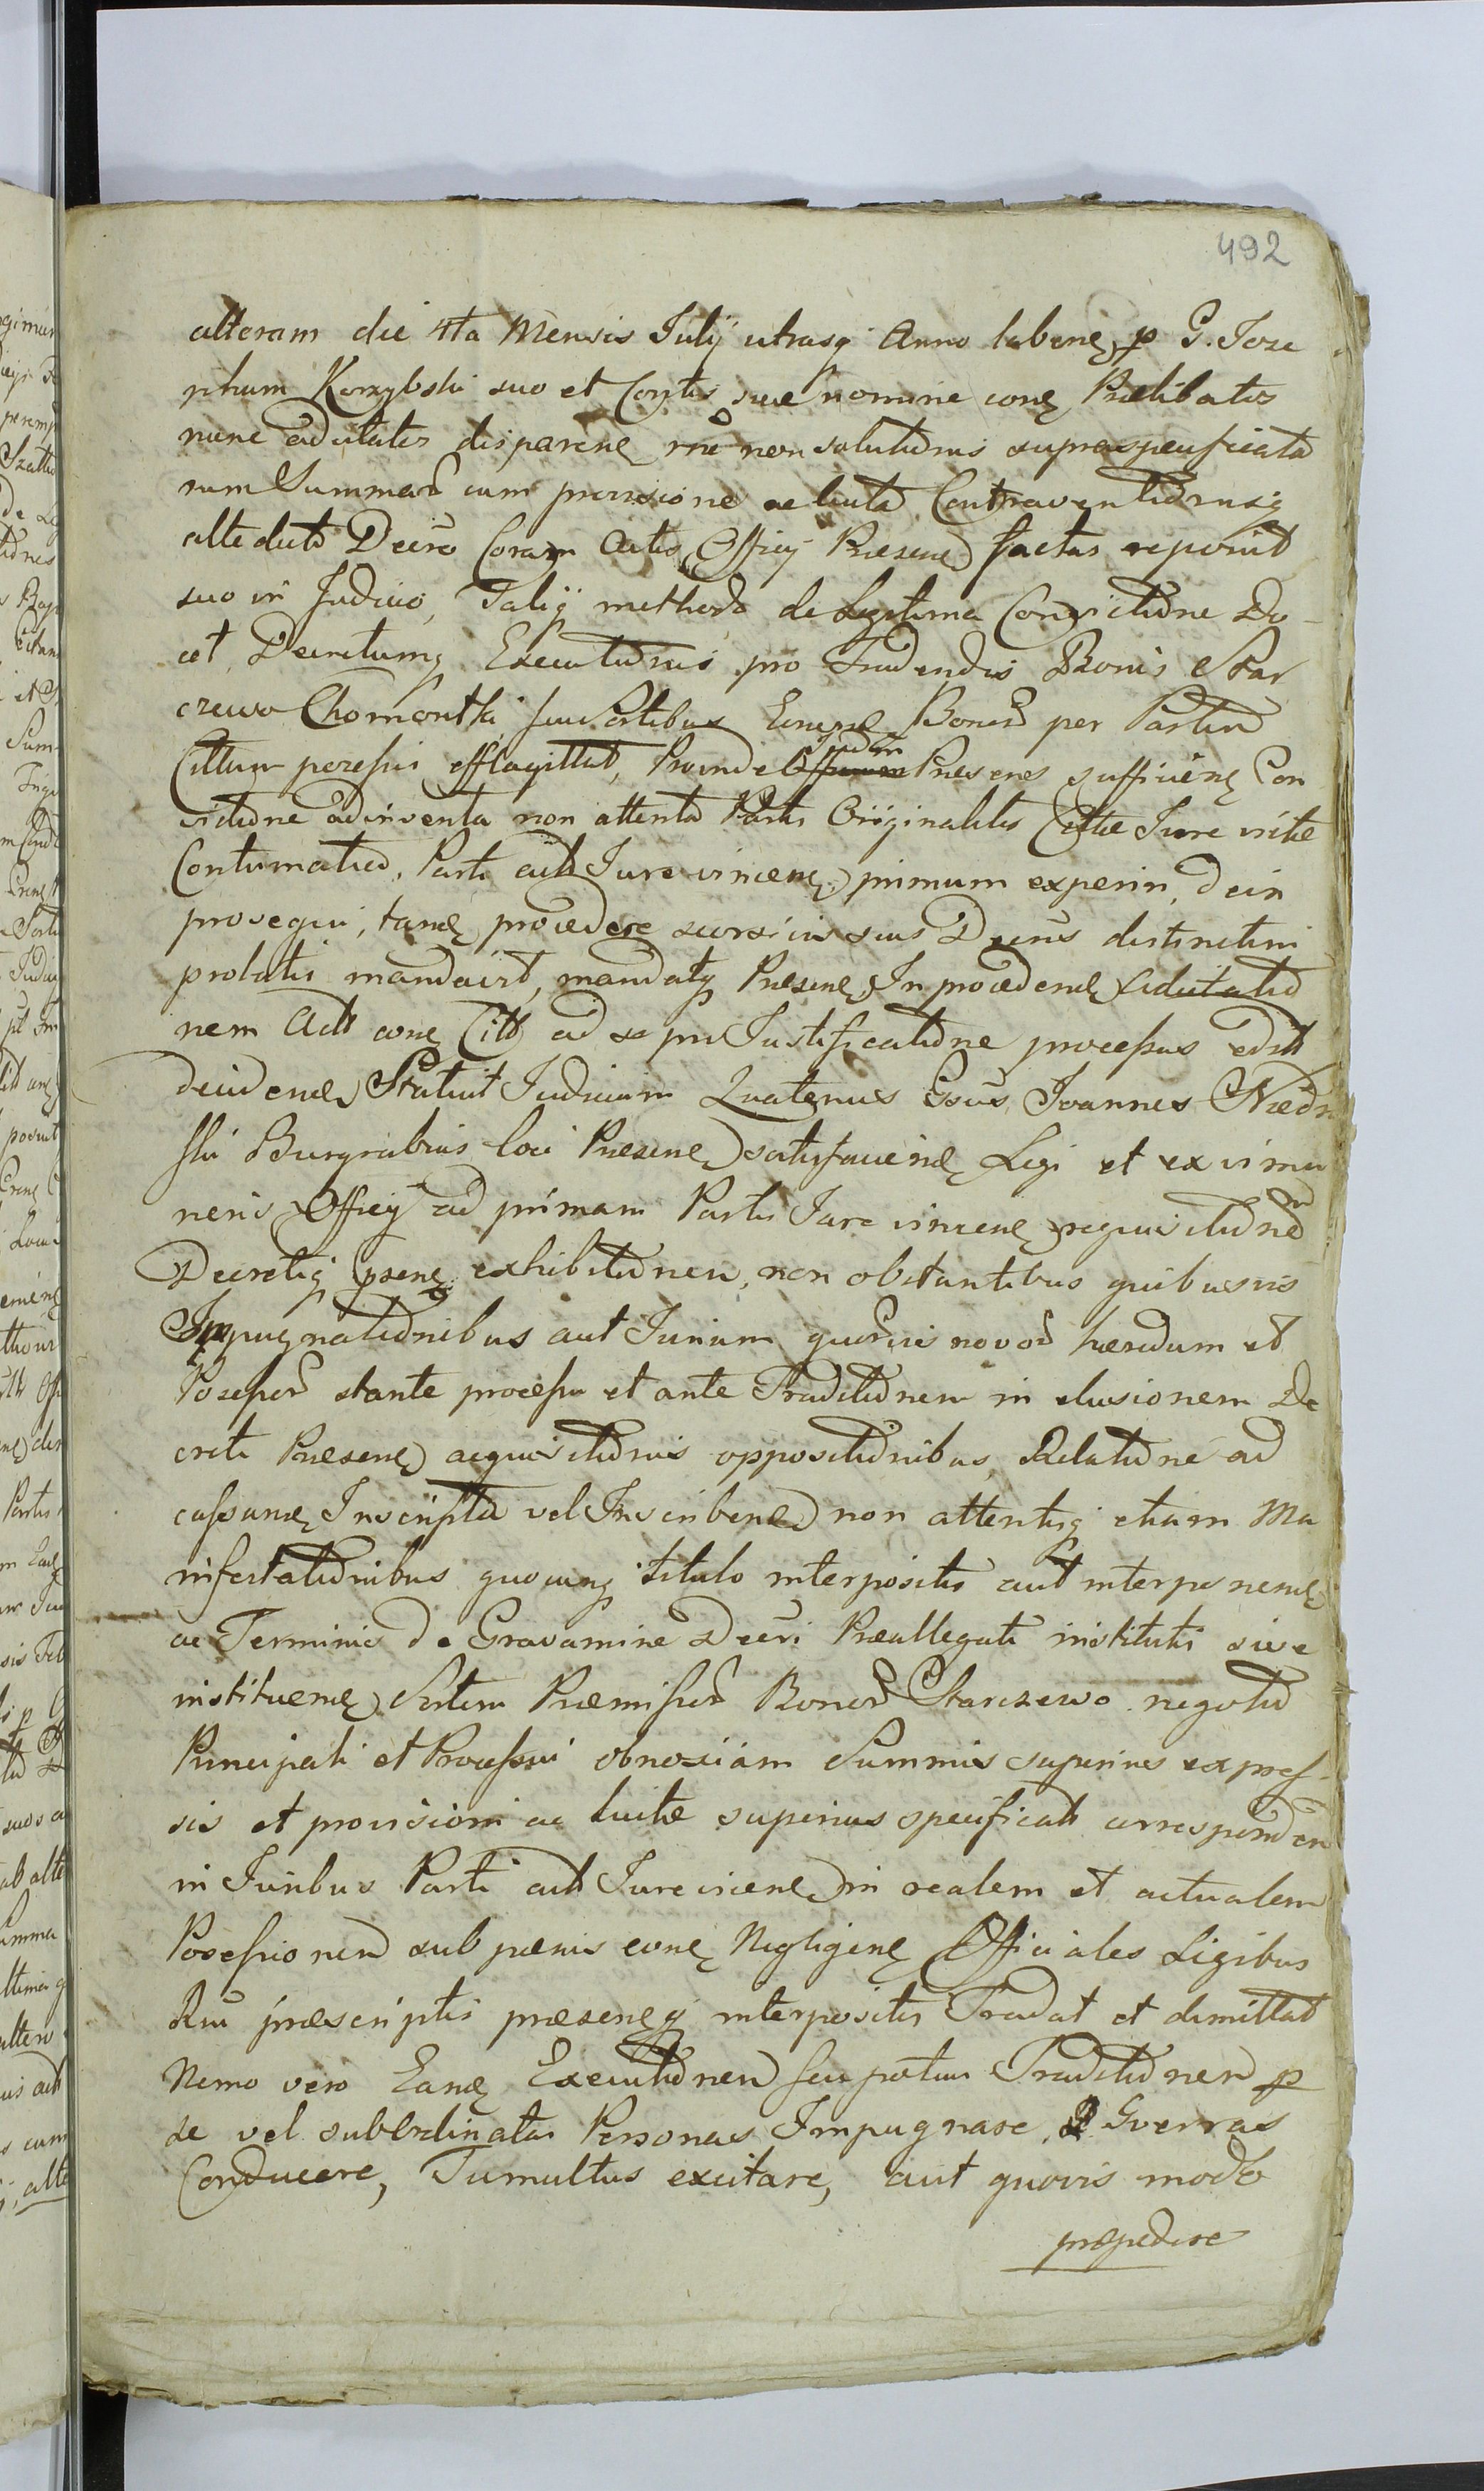 492
alteram die 4ta Mensis Julij utrasq Anno labenę p G. Jose
phum Korzybski suo et Cortis suae nomine conę Praelibatos
nunc adcitatos disparenę rne non solutionis supraspecificata
rum Summarū cum provisione ac luita Contraventionisq
alte dicto Decro Coram Actis Officij Praesenę factas reponit
suo in Judicio, Taliq methodo de Legitima Convictione Do-
cet Decretumq Executionis pro Tradendis Bonis Star
czewo Chomontki seu Sortibus Eorunę Bonorū per Partem
Cittam possessis efflagittat, Proinde Judm Praesens sufficienę Con
victione adinventa non attenta Partis Originalitis Cittae Jure victae
Contumatia, Parti actt Jure vincenę primum experiri, dein
prosequi, tanę procedere seorsivis suis Decris distinctim
prolatis mandavit, mandatq Praesenę In procedenę Adcitatio
nem Actt conę Citt ad se pro Justificatione processus editt
decidenę Statuit Judicium Quatenus Gsus Joannes Niedz
ski Burgrabius loci Praesenę satisfaciendę Legi et ex vi mu
neris Officij ad primam Partis Jure vincenę requisitionem
Decretiq Psenę exhibitionem, non obstantibus quibusvis
Impugnationibus aut Jurium quorvis novorū haeredum et
Possessorū stante processu et ante Traditionem in elusionem De
creti Praesenę acquisitionis oppositionibus, Relatione ad
cassanę Inscripta vel Inscribenę non attentisq etiam Ma
nifestationibus quocunq titulo interpositis aut interponenę
ac Terminis de Gravamine Decri Praeallegati instituti sive
instituenę Sortem Praemissorū Bonorū Starczewo negotio
Principali et Processui obnoxiam Summis superius expres-
sis et provisioni ac luitae superius specificatt corresponden
in Juribus Parti actt Jure vicenę in realem et actualem
Possessionem sub poenis conę Negligenę Officiales Legibus
Rni praescriptis praesenęq interpositis Tradat et dimittat
Nemo vero Eanę Executionem seu potius Traditionem p
se vel subordinatas Personas Impugnare, Gverras
Conducere, Tumultus excitare, aut quovis modo
praepedire